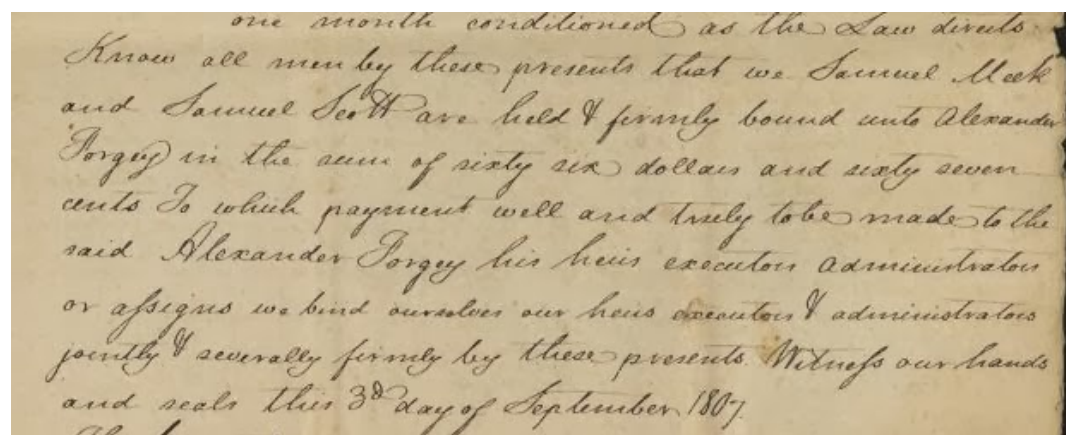 one month conditioned as the Law directs
Know all men by these presents that we Samuel Meek
and Samuel Scott are held & firmly bound unto Alexander
Forgey in the sum of sixty six dollars and sixty seven
cents To which payment well and truely to be made to the
said Alexander Forgey his heirs executors administrators
or assigns we bind ourselves our heirs executors & administrators
jointly & severally firmly by these presents. Witness our hands
and seals this 3d day of September 1807.